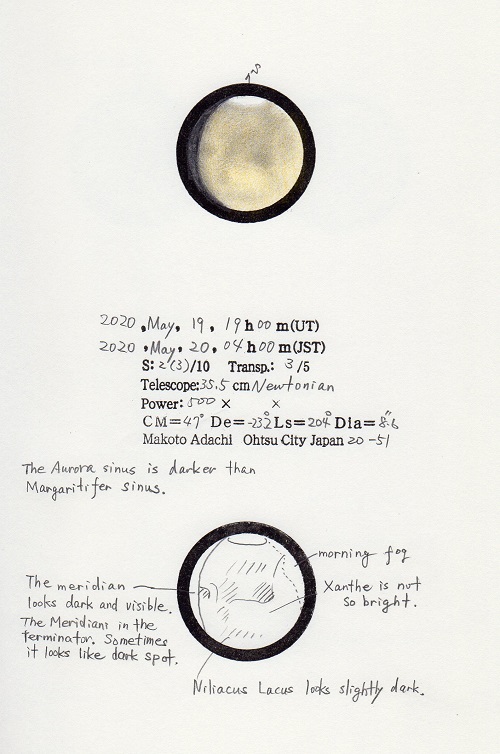 2020, May, 19, 19h00m(UT)
2020, May, 20, 04h00m(JST)
S: 2(3)/10 Transp.: 3/5
Telescope: 35.5 cm Newtonian
Power: 500 × ×
CM=47° De=-23.2° Ls=204° Dia=8.6
Makoto Adachi Ohtsu City Japan 20-51
The Aurora sinus is darker than
Margaritifer sinus.
morning fog
The meridian
looks dark and visible.
Xanthe is not
so bright.
The Meridiani in the
terminator. Sometimes
it looks like dark spot.
Niliacus Lacus looks slightly dark.